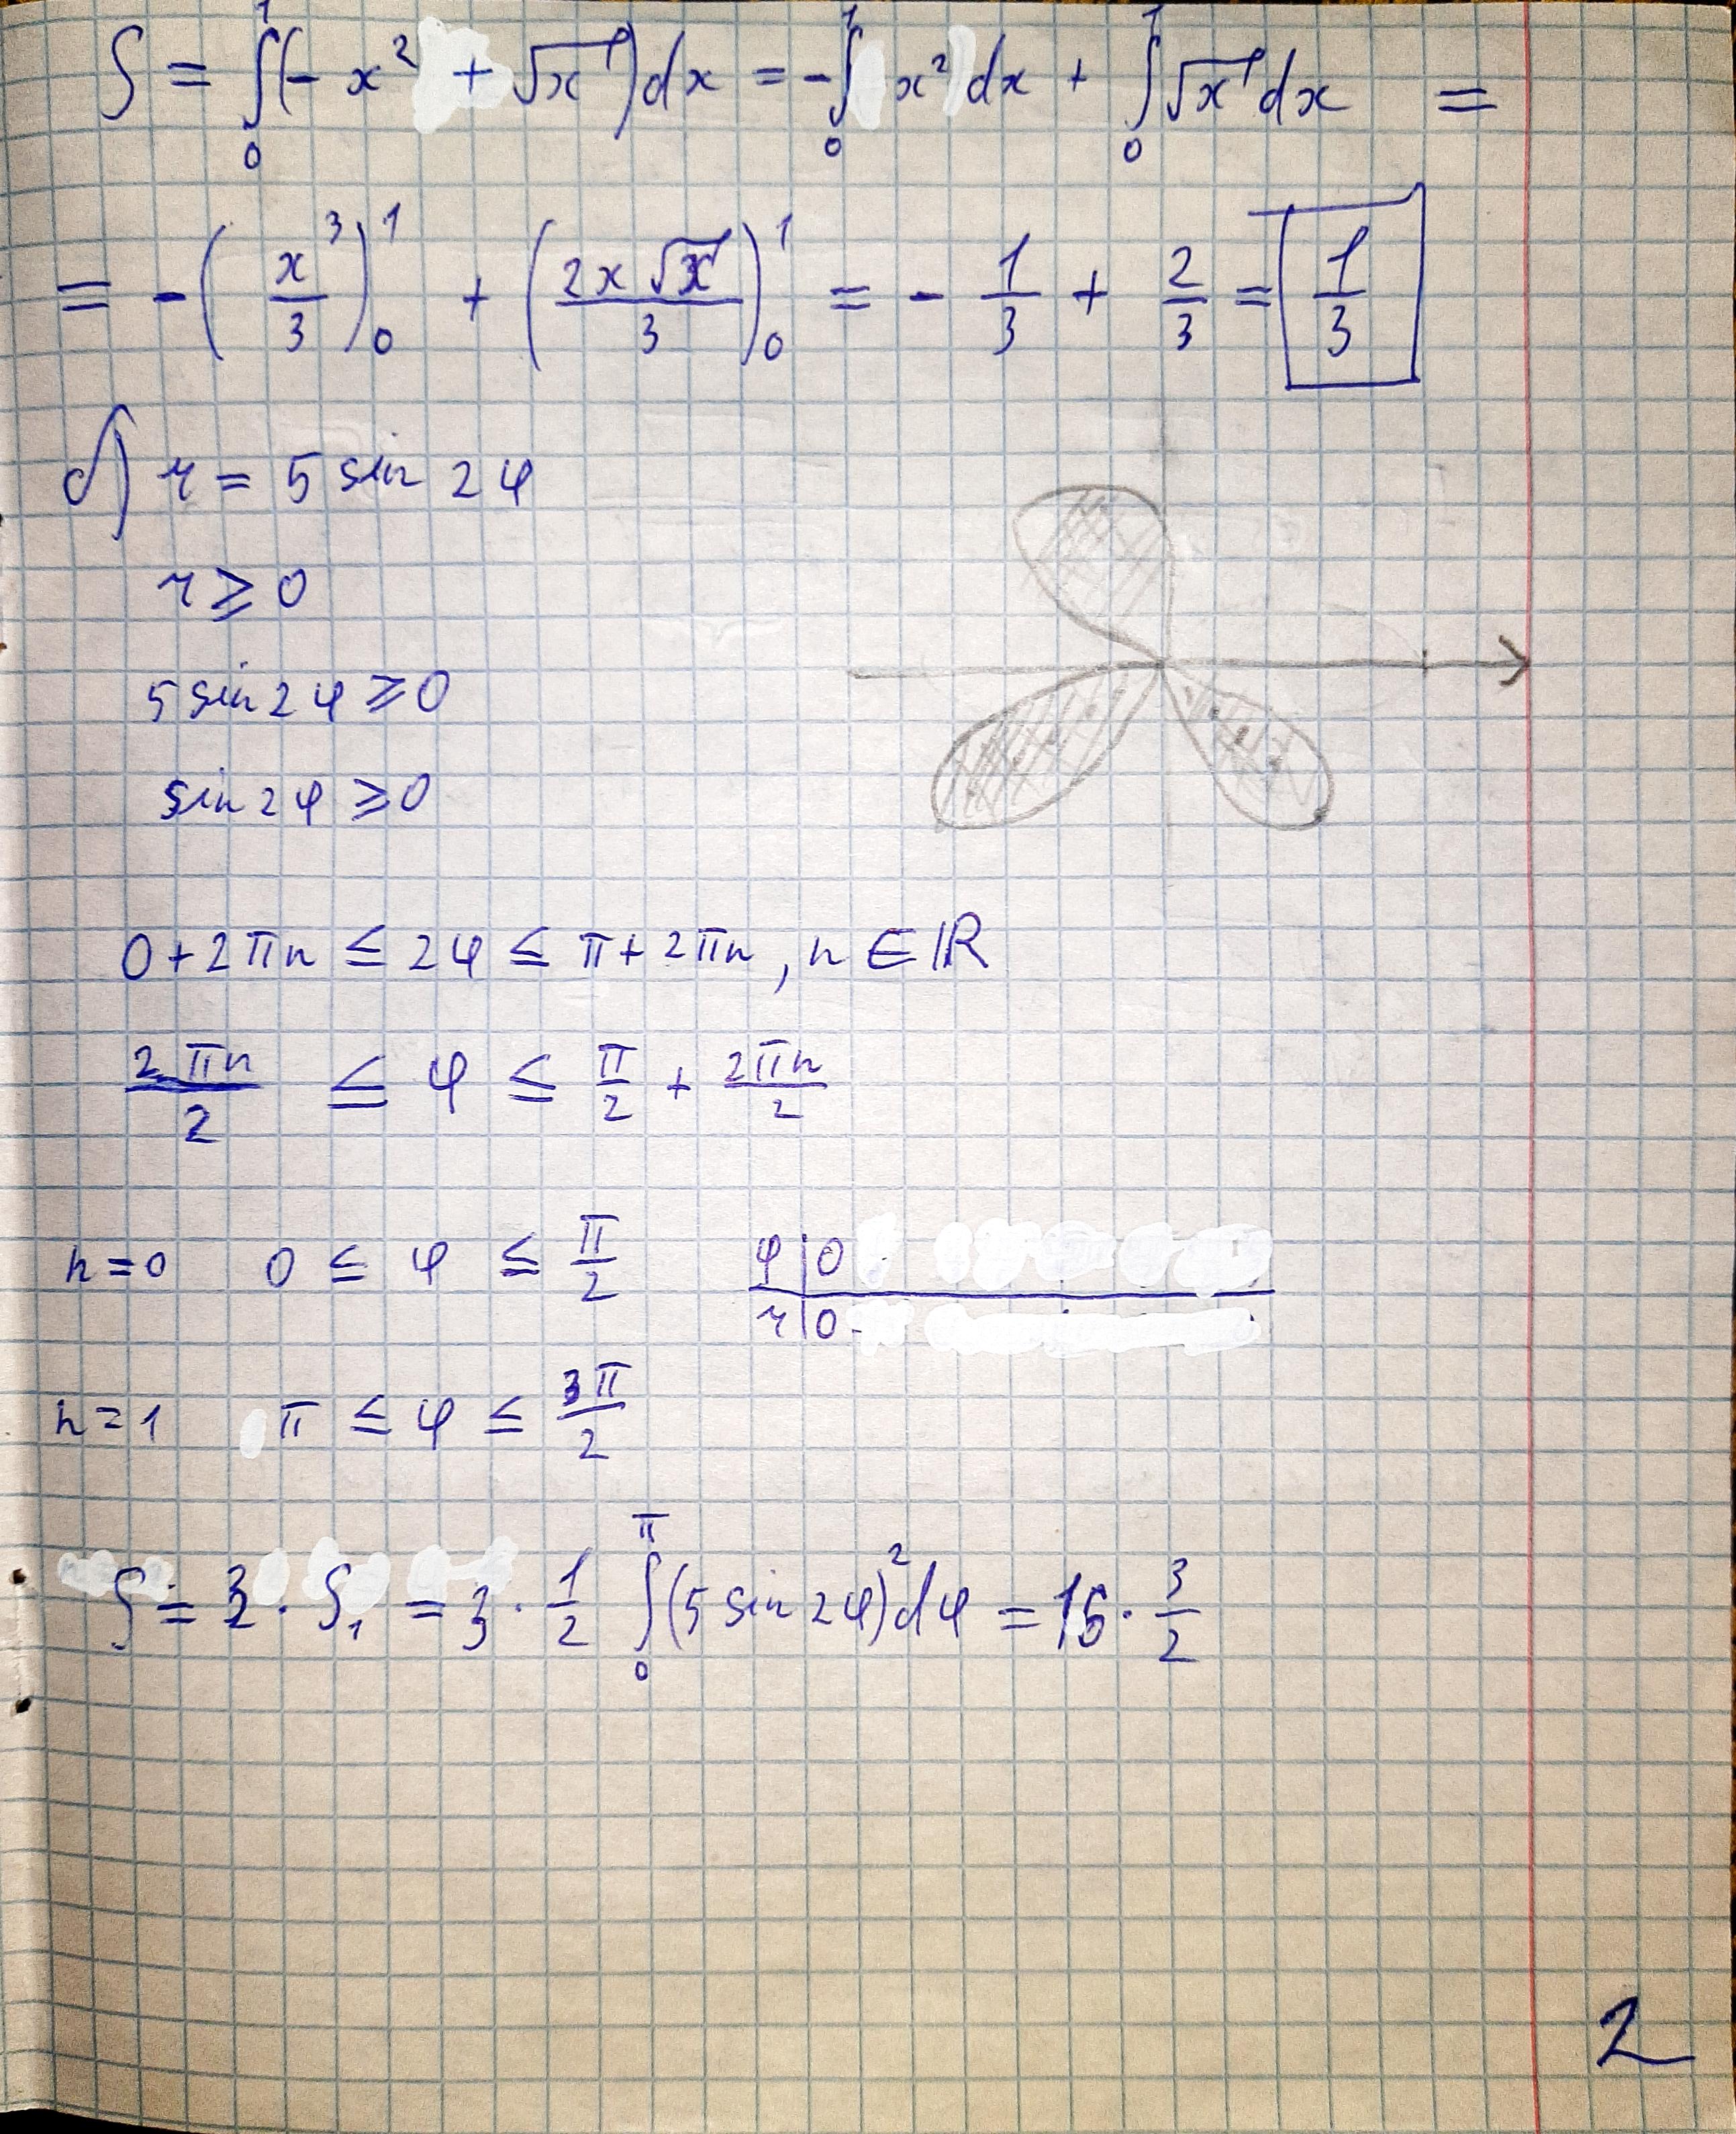 S = ∫₀¹(- x² + √x)dx = -∫₀¹ x² dx + ∫₀¹ √x dx =
= -(x³/3)₀¹ + (2x√x/3)₀¹ = - 1/3 + 2/3 = 1/3
б) r = 5 sin 2φ
r ⩾ 0
5 sin 2φ ⩾ 0
sin 2φ ⩾ 0
0 + 2πn ≤ 2φ ≤ π + 2πn, n ∈ ℝ
2πn/2 ≤ φ ≤ π/2 + 2πn/2
n = 0 0 ≤ φ ≤ π/2 φ | 0
r | 0
n = 1 π ≤ φ ≤ 3π/2
S = 3 · S₁ = 3 · 1/2 ∫₀^π (5 sin 2φ)² dφ = 16 · 3/2
2